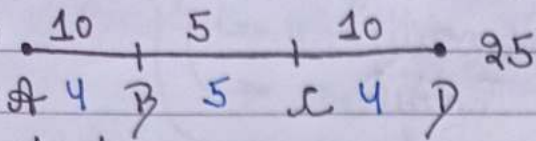 10 5 10
25
A 4 B 5 C 4 D